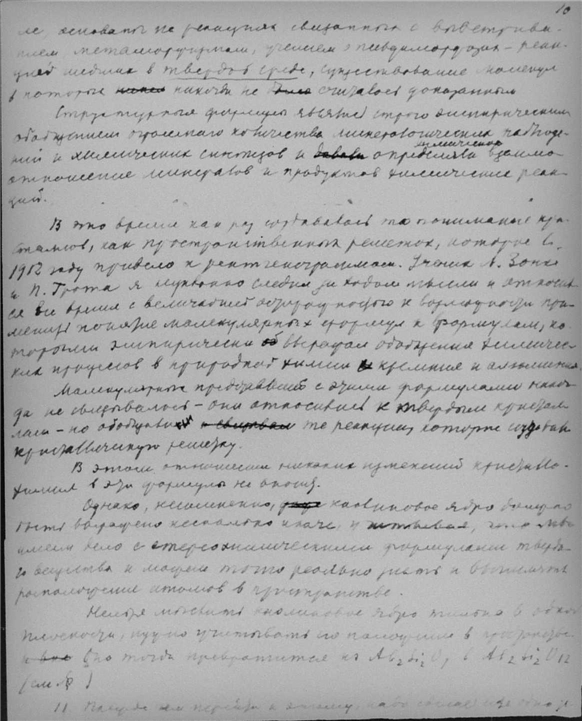 10
ле, основаны на реакциях связанных с выветрива-
нием метаморфизмом, учением о псевдоморфозах – реак-
цией медных в твердой среде, существование молекул
в которых никогда не считалось доказанным
Структурная формулы явл строго эмпирическим
обобщением огромного количества минералогических наблюде-
ний и химических синтезов и определяла химическое взаимо-
отношение минералов и продуктов химические реак-
ций.
В это время как раз создавалось то понимание кри-
сталлов, как пространственных решеток, которое в
1912 году привело к рентгенограммам. Ученик Л. Зонке
и П. Грота я глубоко следил за ходом мысли и относил-
ся все время с величайшей осторожностью к возможности при-
менить понятие молекулярных формул к формулам, ко-
торыми эмпирически выражал обобщения химичес-
ких процессов в природной химии кремния и алюминия.
Молекулярных представлений с этими формулами никог-
да не связывалось – они относились к твердым кристал-
лам – но обобщали те реакции которые создавали
кристаллическую решетку.
В этом отношении никаких изменений кристалло-
химия в эти формулы не вносит.
Однако, несомненно, каолиновое ядро должно
быть выражено несколько иначе, и что мы
имеем дело с стереохимическими формулами твердо-
го вещества и можем точно реально знать и вычислять
расположение атомов в пространстве.
Нельзя мыслить каолиновое ядро только в одной
плоскости, нужно учитывать его положение в пространстве
оно тогда превратится из Al₂Si₂O₇ в Al₂Si₂O₁₂
(см §     )
11. Раньше чем перейти к этому, надо